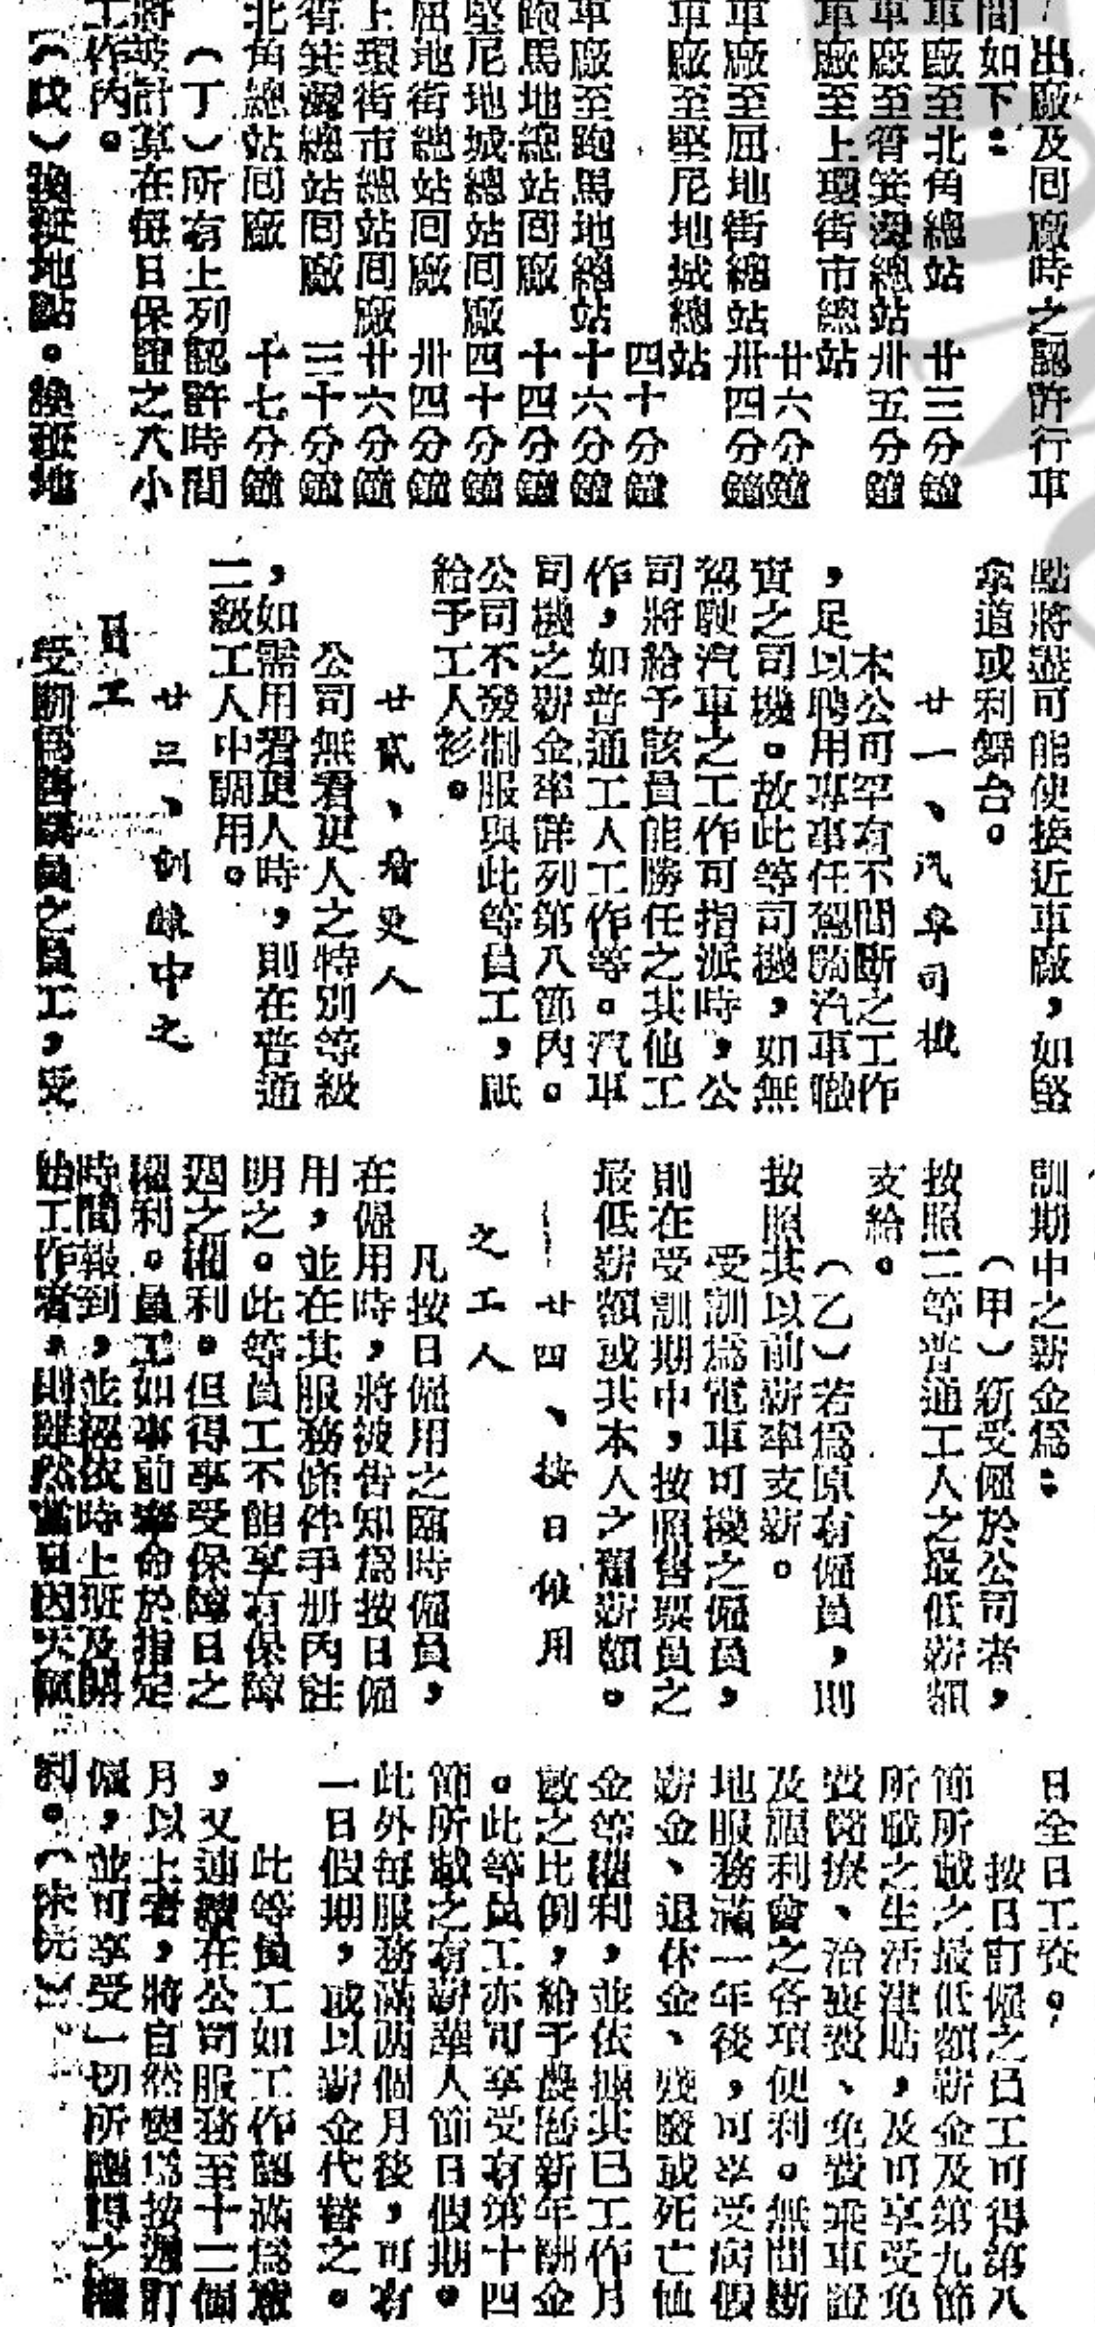 出廠及囘廠時之認許行車
間如下：
車廠至北角總站　廿三分鐘
車廠至筲箕灣總站卅五分鐘
車廠至上環街市總站
廿六分鐘
車廠至屈地街總站卅四分鐘
車廠至堅尼地城總站
四十分鐘
車廠至跑馬地總站十六分鐘
跑馬地總站囘廠　十四分鐘
堅尼地城總站囘廠四十分鐘
屈地街總站囘廠　卅四分鐘
上環街市總站囘廠廿六分鐘
筲箕灣總站囘廠　三十分鐘
北角總站囘廠　十七分鐘
（丁）所有上列認許時間
將被計算在每日保證之八小
工作內。
（戊）換班地點。換班地
點將盡可能使接近車廠，如堅
拿道或利舞台。
廿一、汽車司機
本公司罕有不間斷之工作
，足以聘用專事任駕駛汽車職
責之司機。故此等司機，如無
駕駛汽車之工作可指派時，公
司將給予該員能勝任之其他工
作，如普通工人工作等。汽車
司機之薪金率詳列第八節內。
公司不發制服與此等員工，祇
給予工人衫。
廿貳、看更人
公司無看更人之特別等級
，如需用看更人時，則在普通
二級工人中調用。
廿三、訓練中之
員工
受訓爲售票員之員工，受
訓期中之薪金爲：
（甲）新受僱於公司者，
按照二等普通工人之最低薪額
支給。
（乙）若爲原有僱員，則
按照其以前薪率支薪。
受訓爲電車司機之僱員，
則在受訓期中，按照售票員之
最低薪額或其本人之舊薪額。
廿四、按日僱用
之工人
凡按日僱用之臨時僱員，
在僱用時，將被告知爲按日僱
用，並在其服務條件手册內註
明之。此等員工不能享有保障
週之權利。但得享受保障日之
權利。員工如事前奉命於指定
時間報到，並經依時上班及開
始工作者，則雖然當日因天
日全日工資。
按日訂僱之員工可得第八
節所載之最低額薪金及第九節
所載之生活津貼，及可享受免
費醫療、治喪費、免費乘車證
及福利會之各項便利。無間斷
地服務滿一年後，可享受病假
薪金、退休金、殘廢或死亡恤
金等權利，並依據其已工作月
數之比例，給予農曆新年酬金
。此等員工亦可享受有第十四
節所載之有薪華人節日假期。
此外每服務滿兩個月後，可有
一日假期，或以薪金代替之。
此等員工如工作認滿爲意
，又連續在公司服務至十二個
月以上者，將自然變爲按週訂
僱，並可享受一切所應得之權
利。（未完）